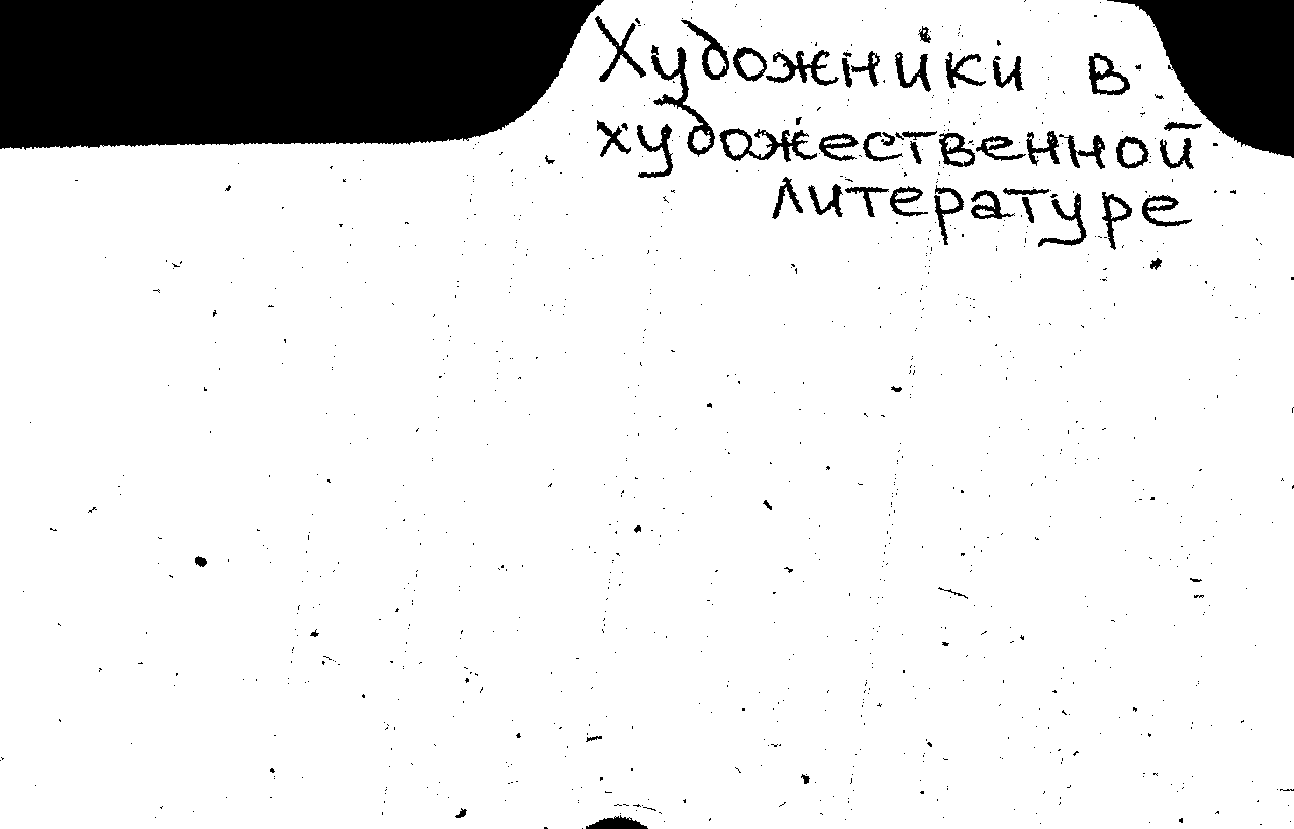 Художники в
художественной
литературе